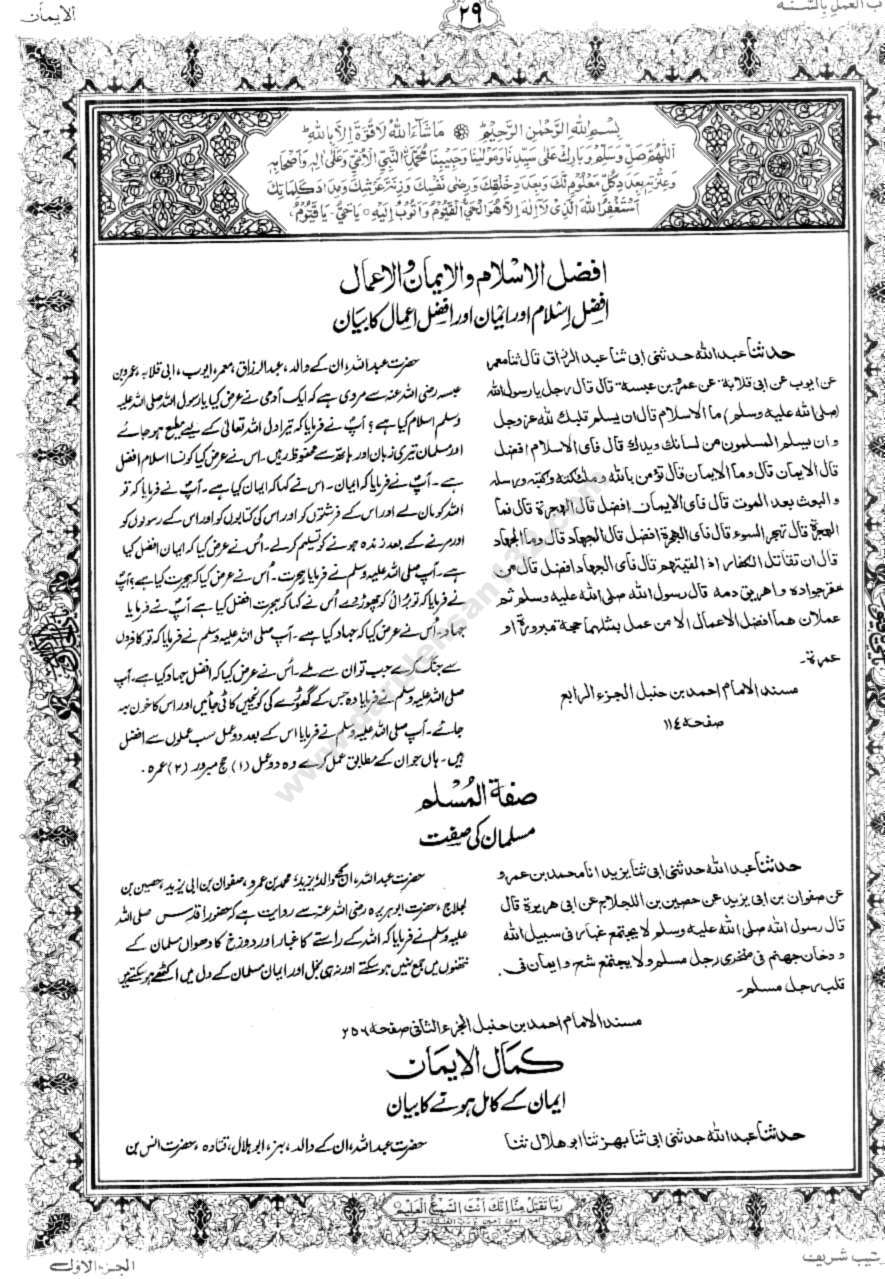 ب العمل بالسنه
٢٩
الايمان
بِسْمِ اللهِ الرَّحْمٰنِ الرَّحِيْمِ مَا شَآءَ اللهُ لَا قُوَّةَ اِلَّا بِاللهِ
اَللّٰهُمَّ صَلِّ وَسَلِّمْ وَبَارِكْ عَلٰى سَيِّدِنَا وَمَوْلٰينَا وَحَبِيْبِنَا مُحَمَّدِ النَّبِيِّ الْاُمِّيِّ وَعَلٰى اٰلِهٖ وَاَصْحَابِهٖ
وَعِتْرَتِهٖ بِعَدَدِ كُلِّ مَعْلُوْمٍ لَّكَ وَبِعَدَدِ خَلْقِكَ وَرِضٰى نَفْسِكَ وَزِنَةِ عَرْشِكَ وَمِدَادِ كَلِمَاتِكَ
اَسْتَغْفِرُ اللهَ الَّذِيْ لَآ اِلٰهَ اِلَّا هُوَ الْحَيُّ الْقَيُّوْمُ وَاَتُوْبُ اِلَيْهِ يَا حَيُّ يَا قَيُّوْمُ
افضل الاسلام والايمان والاعمال
افضل اسلام اور ایمان اور افضل اعمال کا بیان
حدثنا عبد الله حدثنى ابى ثنا عبد الرزاق قال ثنا معمر
عن ايوب عن ابى قلابة عن عمرو بن عبسة قال قال رجل يا رسول الله
(صلى الله عليه وسلم) ما الاسلام قال ان يسلم قلبك لله عز وجل
وان يسلم المسلمون من لسانك ويدك قال فاى الاسلام افضل
قال الايمان قال وما الايمان قال تؤمن بالله وملئكته وكتبه ورسله
والبعث بعد الموت قال فاى الايمان افضل قال الهجرة قال فما
الهجرة قال تهجر السوء قال فاى الهجرة افضل قال الجهاد قال وما الجهاد
قال ان تقاتل الكفار اذا لقيتهم قال فاى الجهاد افضل قال من
عقر جواده واهريق دمه قال رسول الله صلى الله عليه وسلم ثم
عملان هما افضل الاعمال الا من عمل بمثلهما حجة مبرورة او
عمرة۔
مسند الامام احمد بن حنبل الجزء الرابع
صفحة ١١٤
حضرت عبداللہ، ان کے والد، عبدالرزاق، معمر، ایوب، ابی قلابہ، عمرو بن
عبسہ رضی اللہ عنہ سے مروی ہے کہ ایک آدمی نے عرض کیا یا رسول اللہ صلی اللہ علیہ
وسلم اسلام کیا ہے؟ آپ نے فرمایا کہ تیرا دل اللہ تعالیٰ کے لیے مطیع ہو جائے
اور مسلمان تیری زبان اور ہاتھ سے محفوظ رہیں۔ اس نے عرض کیا کونسا اسلام افضل
ہے۔ آپ نے فرمایا کہ ایمان۔ اس نے کہا کہ ایمان کیا ہے۔ آپ نے فرمایا کہ تو
اللہ کو مان لے اور اس کے فرشتوں کو اور اس کی کتابوں کو اور اس کے رسولوں کو
اور مرنے کے بعد زندہ ہونے کو تسلیم کرلے۔ اُس نے عرض کیا کہ ایمان افضل کیا
ہے۔ آپ صلی اللہ علیہ وسلم نے فرمایا ہجرت۔ اُس نے عرض کیا کہ ہجرت کیا ہے؟ آپ
نے فرمایا کہ تو برائی کو چھوڑ دے اُس نے کہا کہ ہجرت افضل کیا ہے آپ نے فرمایا
جہاد۔ اُس نے عرض کیا کہ جہاد کیا ہے۔ آپ صلی اللہ علیہ وسلم نے فرمایا کہ تو کافروں
سے جنگ کرے جب تو ان سے ملے۔ اُس نے عرض کیا کہ افضل جہاد کیا ہے۔ آپ
صلی اللہ علیہ وسلم نے فرمایا وہ جس کے گھوڑے کی کونچیں کاٹی جائیں اور اس کا خون بہہ
جائے۔ آپ صلی اللہ علیہ وسلم نے فرمایا اس کے بعد دو عمل سب عملوں سے افضل
ہیں۔ ہاں جو ان کے مطابق عمل کرے وہ دو عمل (١) حج مبرور (٢) عمرہ۔
صفة المُسلم
مسلمان کی صفت
حدثنا عبد الله حدثنى ابى ثنا يزيد انا محمد بن عمرو
عن صفوان بن ابى يزيد عن حصين بن اللجلاج عن ابى هريرة قال
قال رسول الله صلى الله عليه وسلم لا يجتمع غبار فى سبيل الله
ودخان جهنم فى منخرى رجل مسلم ولا يجتمع شح وايمان فى
قلب رجل مسلم۔
مسند الامام احمد بن حنبل الجزء الثانى صفحة ٢٥٦
حضرت عبداللہ، ان کے والد، یزید، محمد بن عمرو، صفوان بن ابی یزید، حصین بن
لجلاج، حضرت ابوہریرہ رضی اللہ عنہ سے روایت ہے کہ حضور اقدس صلی اللہ
علیہ وسلم نے فرمایا کہ اللہ کے راستے کا غبار اور دوزخ کا دھواں مسلمان کے
نتھنوں میں جمع نہیں ہو سکتے اور نہ ہی بخل اور ایمان مسلمان کے دل میں اکٹھے ہو سکتے ہیں
كمال الايمان
ایمان کے کامل ہونے کا بیان
حدثنا عبد الله حدثنى ابى ثنا بهز ثنا ابو هلال ثنا
حضرت عبداللہ، ان کے والد، بہز، ابو ہلال، قتادہ، حضرت انس بن
رَبَّنَا تَقَبَّلْ مِنَّا اِنَّكَ اَنْتَ السَّمِيْعُ الْعَلِيْمُ
ترتیب شریف
الجزء الاوّل